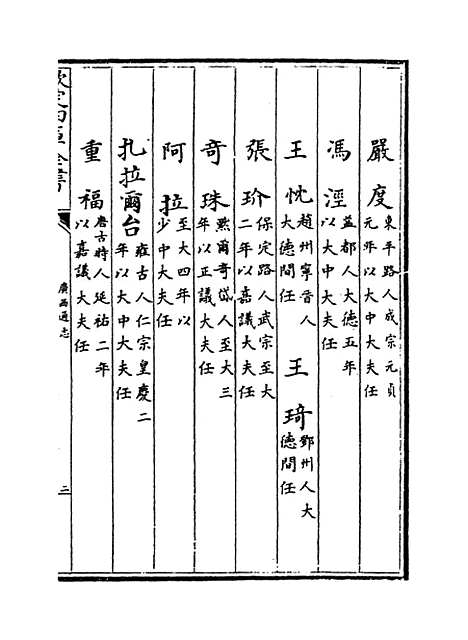 嚴度 東平路人成宗元貞元年以大中大夫任
馮淫 益都人大德五年以大中大夫任
王忱 趙州寧晉人大德間任 王琦 鄧州人大德間任
張玠 保定路人武宗至大二年以嘉議大夫任
奇珠 黙爾奇岱人至大三年以正議大夫任
阿拉 至大四年以少中大夫任
扎拉爾台 雍古人仁宗皇慶二年以大中大夫任
重福 唐古特人延祐二年以嘉議大夫任
欽定四庫全書
廣西通志
三